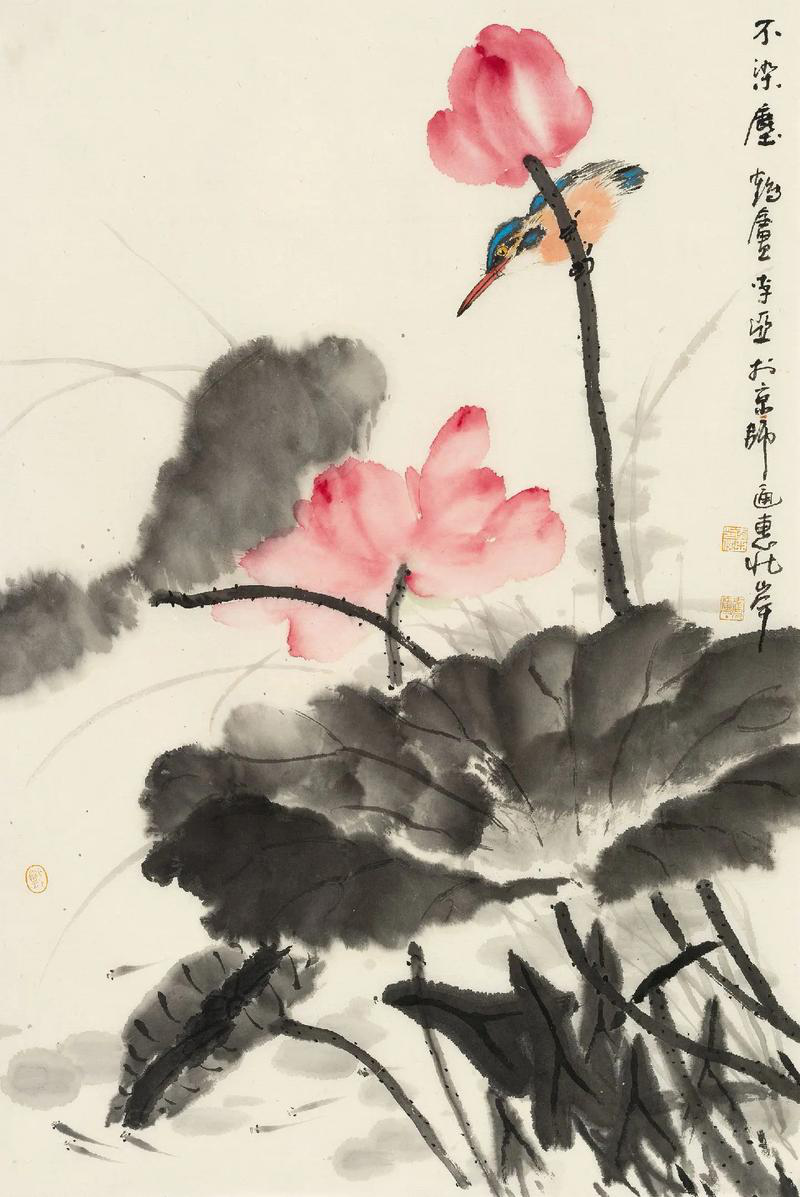 不染塵 鶴廬李亞於京師通惠北岸